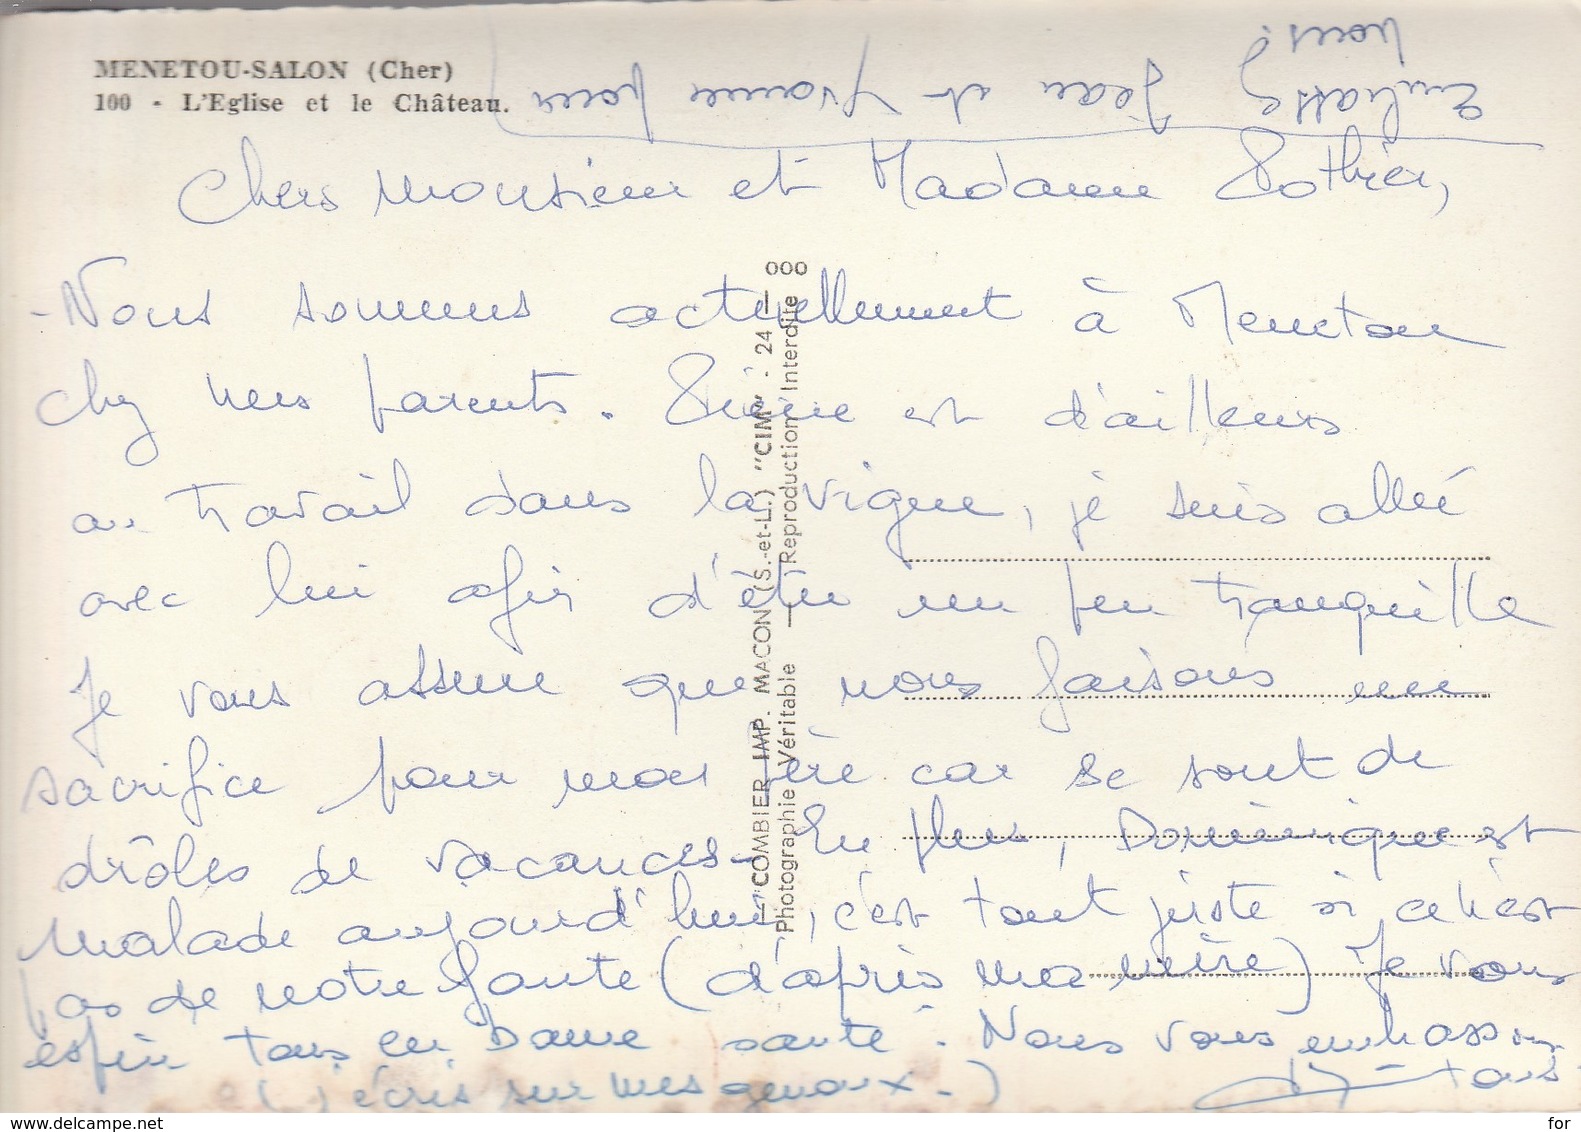 MENETOU-SALON (Cher)
100 - L'Eglise et le Château.
Embrassez Jean et Yvonne pour
nous!
Chers Monsieur et Madame Pothier,
- Nous sommes actuellement à Menetou
chez mes parents. Pierre est d'ailleurs
au travail dans la vigne, je suis allée
avec lui afin d'être un peu tranquille
Je vous assure que nous faisons un
sacrifice pour mon père car se sont de
drôles de vacances. En plus, Dominique est
malade aujourd'hui, c'est tout juste si ce n'est
pas de notre faute (d'après ma mère) Je vous
espère tous en bonne santé. Nous vous embrassons
tous
(j'écris sur mes genoux.)
"COMBIER IMP. MACON (S.-et-L.) "CIM" - 24 — 000
Photographie Véritable — Reproduction Interdite
www.delcampe.net
for